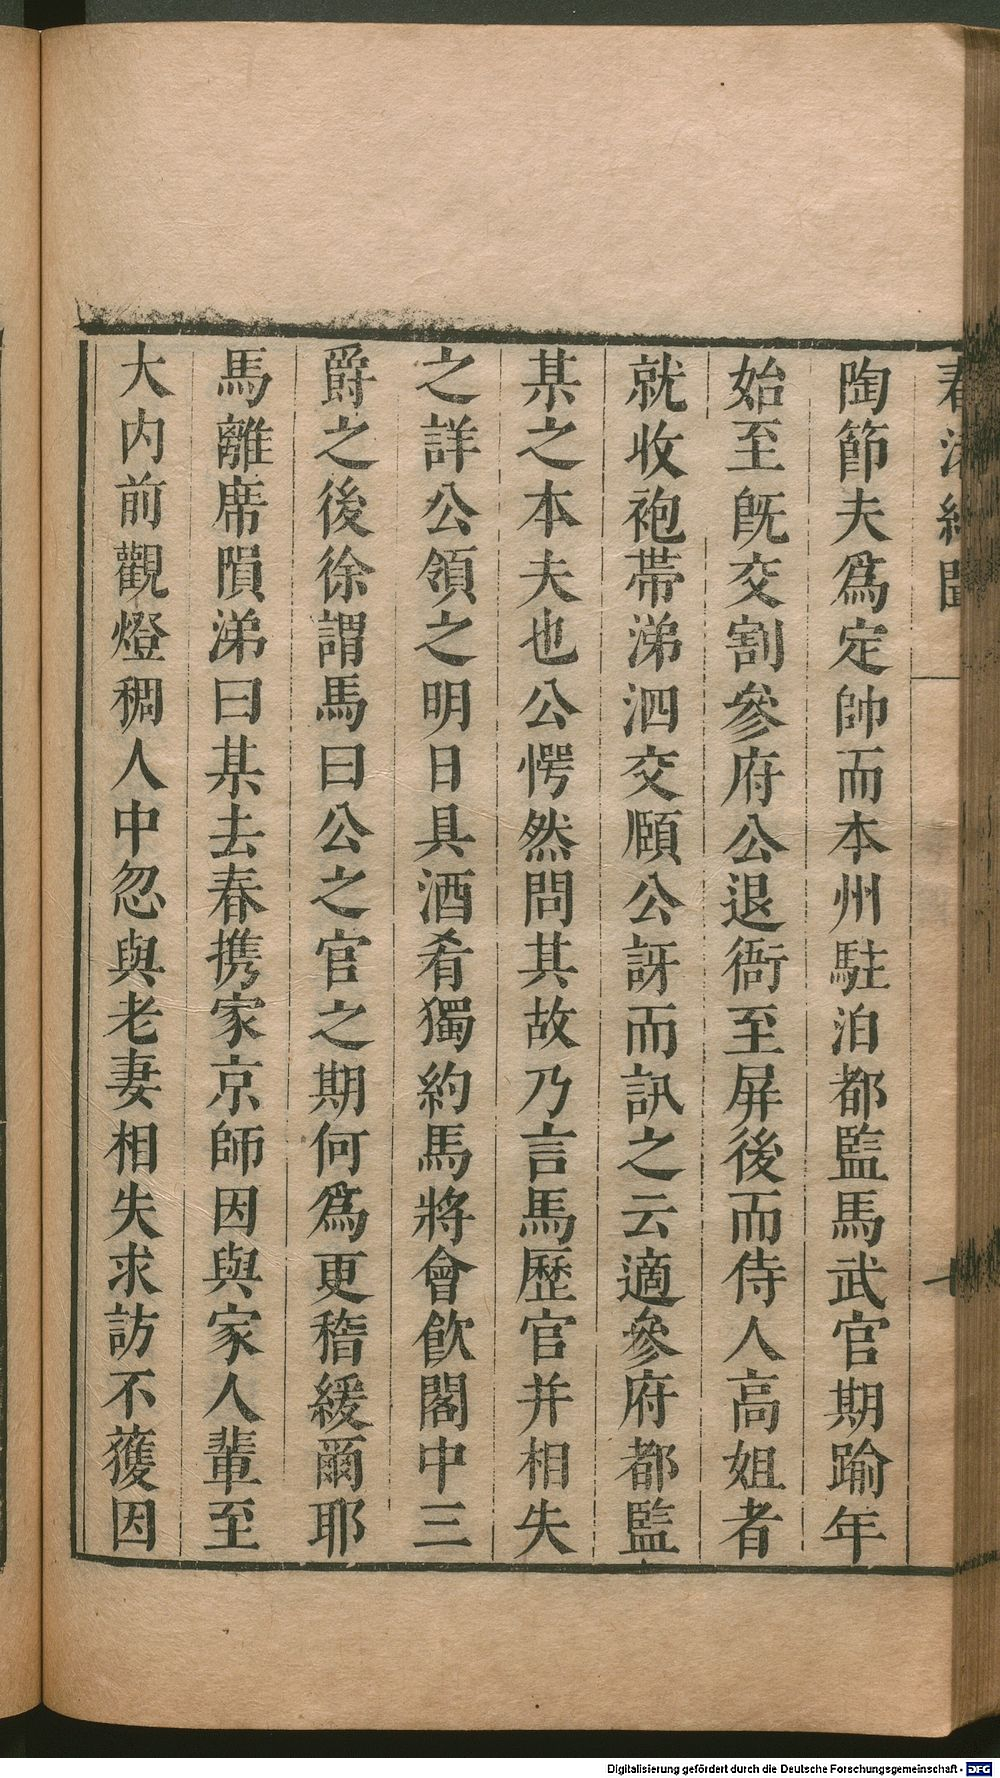 陶節夫爲定帥而本州駐泊都監馬武官期踰年
始至旣交割參府公退衙至屏後而侍人高姐者
就收袍帶涕泗交頤公訝而訊之云適參府都監
某之本夫也公愕然問其故乃言馬歷官并相失
之詳公領之明日具酒肴獨約馬將會飮閣中三
爵之後徐謂馬曰公之官之期何爲更稽緩爾耶
馬離席隕涕曰某去春携家京師因與家人輩至
大内前觀燈稠人中忽與老妻相失求訪不獲因
Digitalisierung gefördert durch die Deutsche Forschungsgemeinschaft - DFG